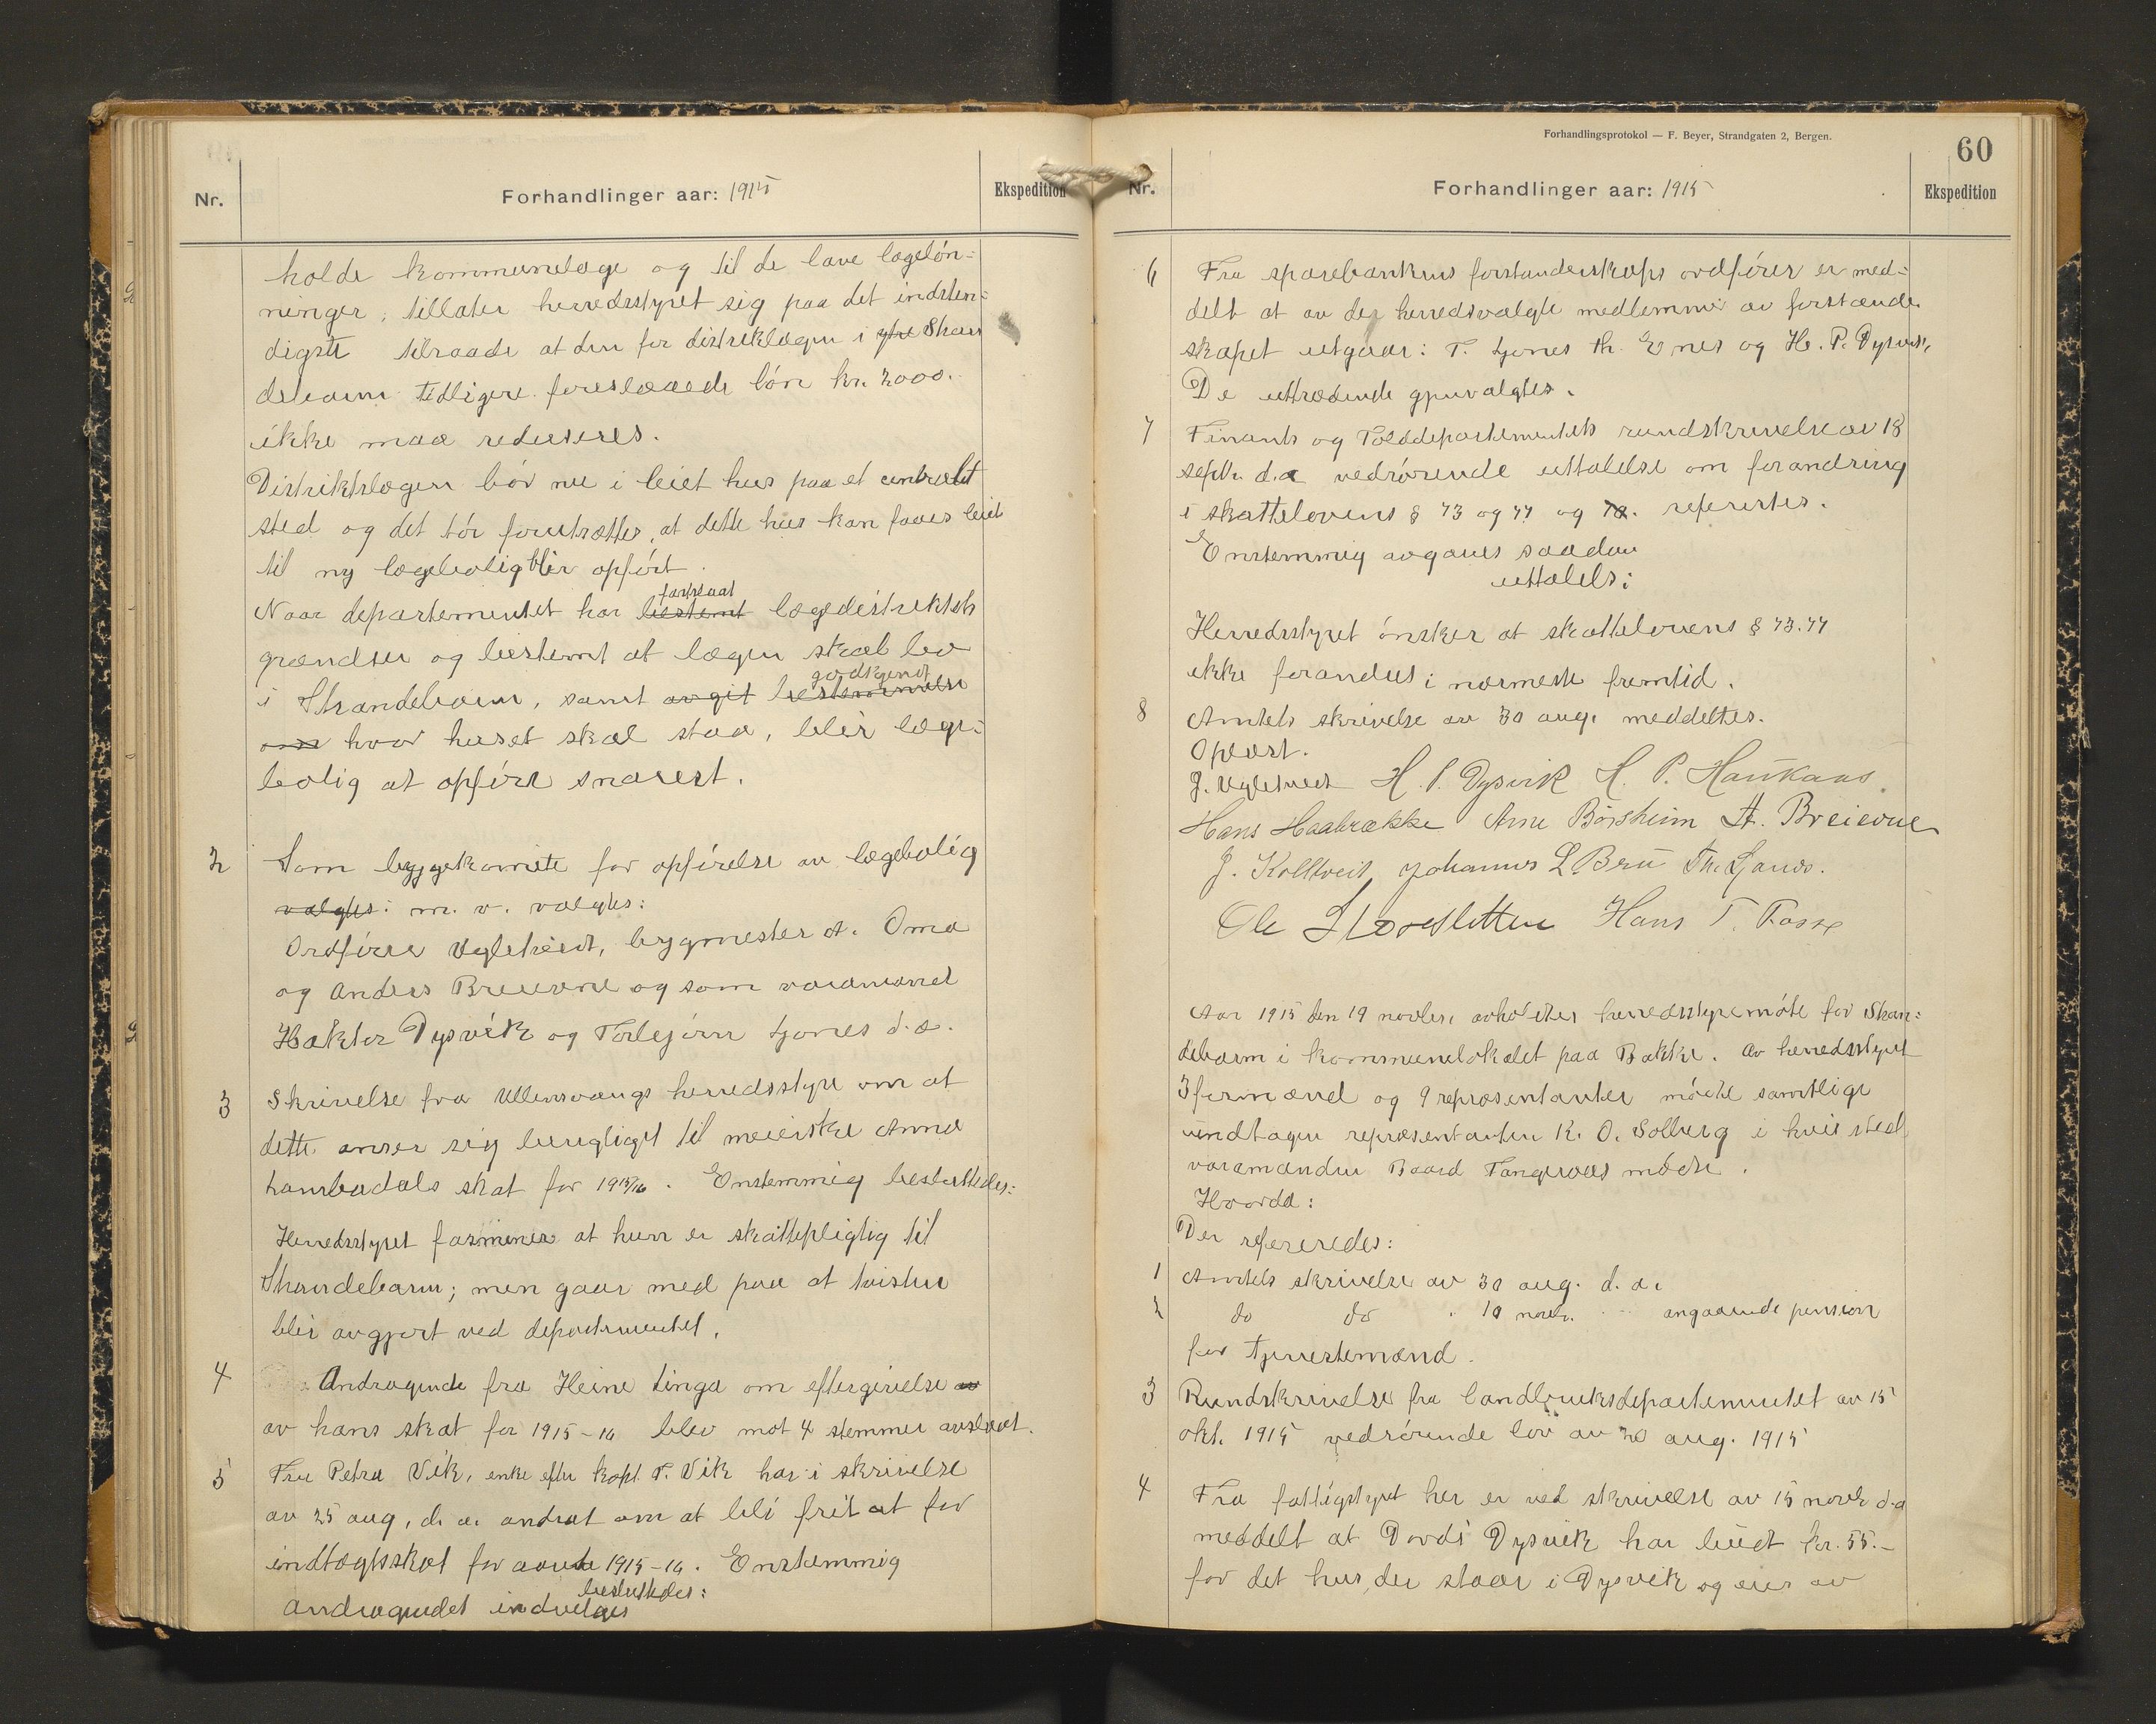 Nr.
Forhandlinger aar: 1915
Ekspedition
holde kommunelæge og til de lave lægeløn=
ninger, tillater herredsstyret sig paa det indsten=
digste tilraade at den for distriktlægen i ytre Stran
debarm tidligere foreslaaede løn kr. 2000.-
ikke maa reduseres.
Distriktslægen bor nu i leiet hus paa et centralt
sted og det tør forutsættes, at dette hus kan faaes leiet
til ny lægebolig blir opført.
fastsaat
Naar departementet har bestemt lægedistriktets
grændser og bestemt at lægen skal bo
godkjendt
i Strandebarm, samt avgit bestemmelse
om hvor huset skal staa, blir læge=
bolig at opføre snarest.
2 Som byggekomite for opførelse av lægebolig
valgtes: m. v. valgtes:
Ordfører Ugletveit, bygmester A. Oma
og Anders Breievne og som varamænd
Hæktor Dysvik og Torbjørn Fjones d.æ.
3 Skrivelse fra Ullensvangs herredsstyre om at
dette anser sig berettiget til meierske Anna
Lambadals skat for 1915/16. Enstemmig besluttedes:
Herredsstyret formener at hun er skattepligtig til
Strandebarm; men gaar med paa at tvisten
blir avgjort ved departementet.
4 Andragende fra Heine Linga om eftergivelse av
av hans skat for 1915-16 blev mot 4 stemmer avslaaet.
5 Fru Petra Vik, enke efter kapt. T. Vik har i skrivelse
av 25 aug. d. a. andrat om at bli fritat for
indtægtsskat for aaret 1915-16. Enstemmig
besluttedes:
Andragendet indvilges
Forhandlingsprotokol — F. Beyer, Strandgaten 2, Bergen.
60
Nr.
Forhandlinger aar: 1915
Ekspedition
6 Fra sparebankens forstanderskaps ordfører er med=
delt at av der herredsvalgte medlemmer av forstander
skapet utgaar: T. Fjones Th. Enes og H. P. Dysvik.
De uttrædende gjenvalgtes.
7 Finants og Tolddepartementets rundskrivelse av 18
septbr. d.a vedrørende uttalelse om forandring
i skattelovens § 73 og 77 og 78. referertes.
Enstemmig avgaves saadan
uttalels:
Herredsstyret ønsker at skattelovens § 73.77
ikke forandres i nærmeste fremtid.
8 Amtets skrivelse av 30 aug. meddeltes.
Oplæst.
J. Ugletveit H. P. Dysvik H. P. Haukaas
Hans Haabrække Arne Børsheim A. Breievne
J. Kolltveit Johannes L. Bru Th. Fjanes.
Ole Storesletten Hans T. Fosse
Aar 1915 den 19 novbr. avholdtes herredsstyremøte for Stran=
debarm i kommunelokalet paa Bakke. Av herredsstyret
3 formænd og 9 repræsentanter mødte samtlige
undtagen repræsentanten K. O. Solberg i hvis sted
varamanden Baard Tangeraas mødte.
Hvorda:
Der refereredes:
1 Amtets skrivelse av 30 aug. d. a.
2 do do " 10 novbr. " angaaende pension
for tjenestemænd.
3 Rundskrivelse fra landbruksdepartementet av 15
okt. 1915 vedrørende lov av 20 aug. 1915
4 Fra fattigstyret her er ved skrivelse av 15 novb d.a
meddelt at Dordi Dysvik har budt kr. 55.-
for det hus, der staar i Dysvik og eies av